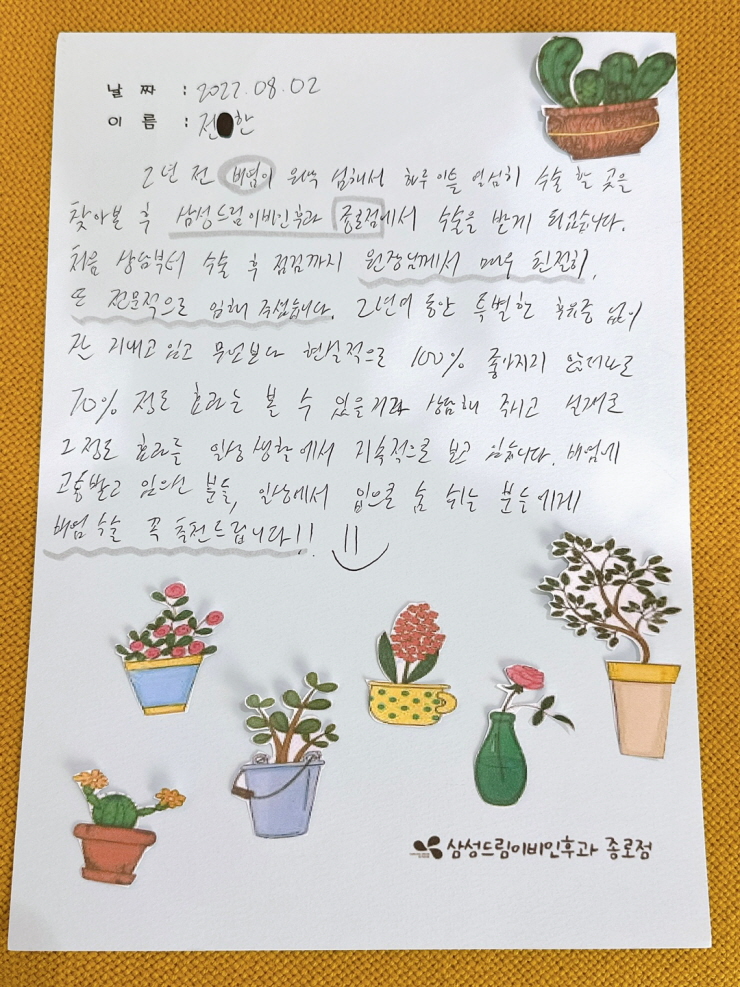 날 짜 : 2022.08.02
이 름 : 전 한
2년 전 비염이 워낙 심해서 하루 이틀 열심히 수술 할 곳을
찾아본 후 삼성드림이비인후과 종로점에서 수술을 받게 되었습니다.
처음 상담부터 수술 후 점검까지 원장님께서 매우 친절히,
또 전문적으로 임해 주셨습니다. 2년여 동안 특별한 후유증 없이
잘 지내고 있고 무엇보다 현실적으로 100% 좋아지진 않더라도
70% 정도 효과는 볼 수 있을거라 상담해 주시고 실제로
그 정도 효과를 일상생활에서 지속적으로 보고 있습니다. 비염에
고통받고 있으신 분들, 일상에서 입으로 숨 쉬는 분들에게
비염 수술 꼭 추천드립니다!!
삼성드림이비인후과 종로점